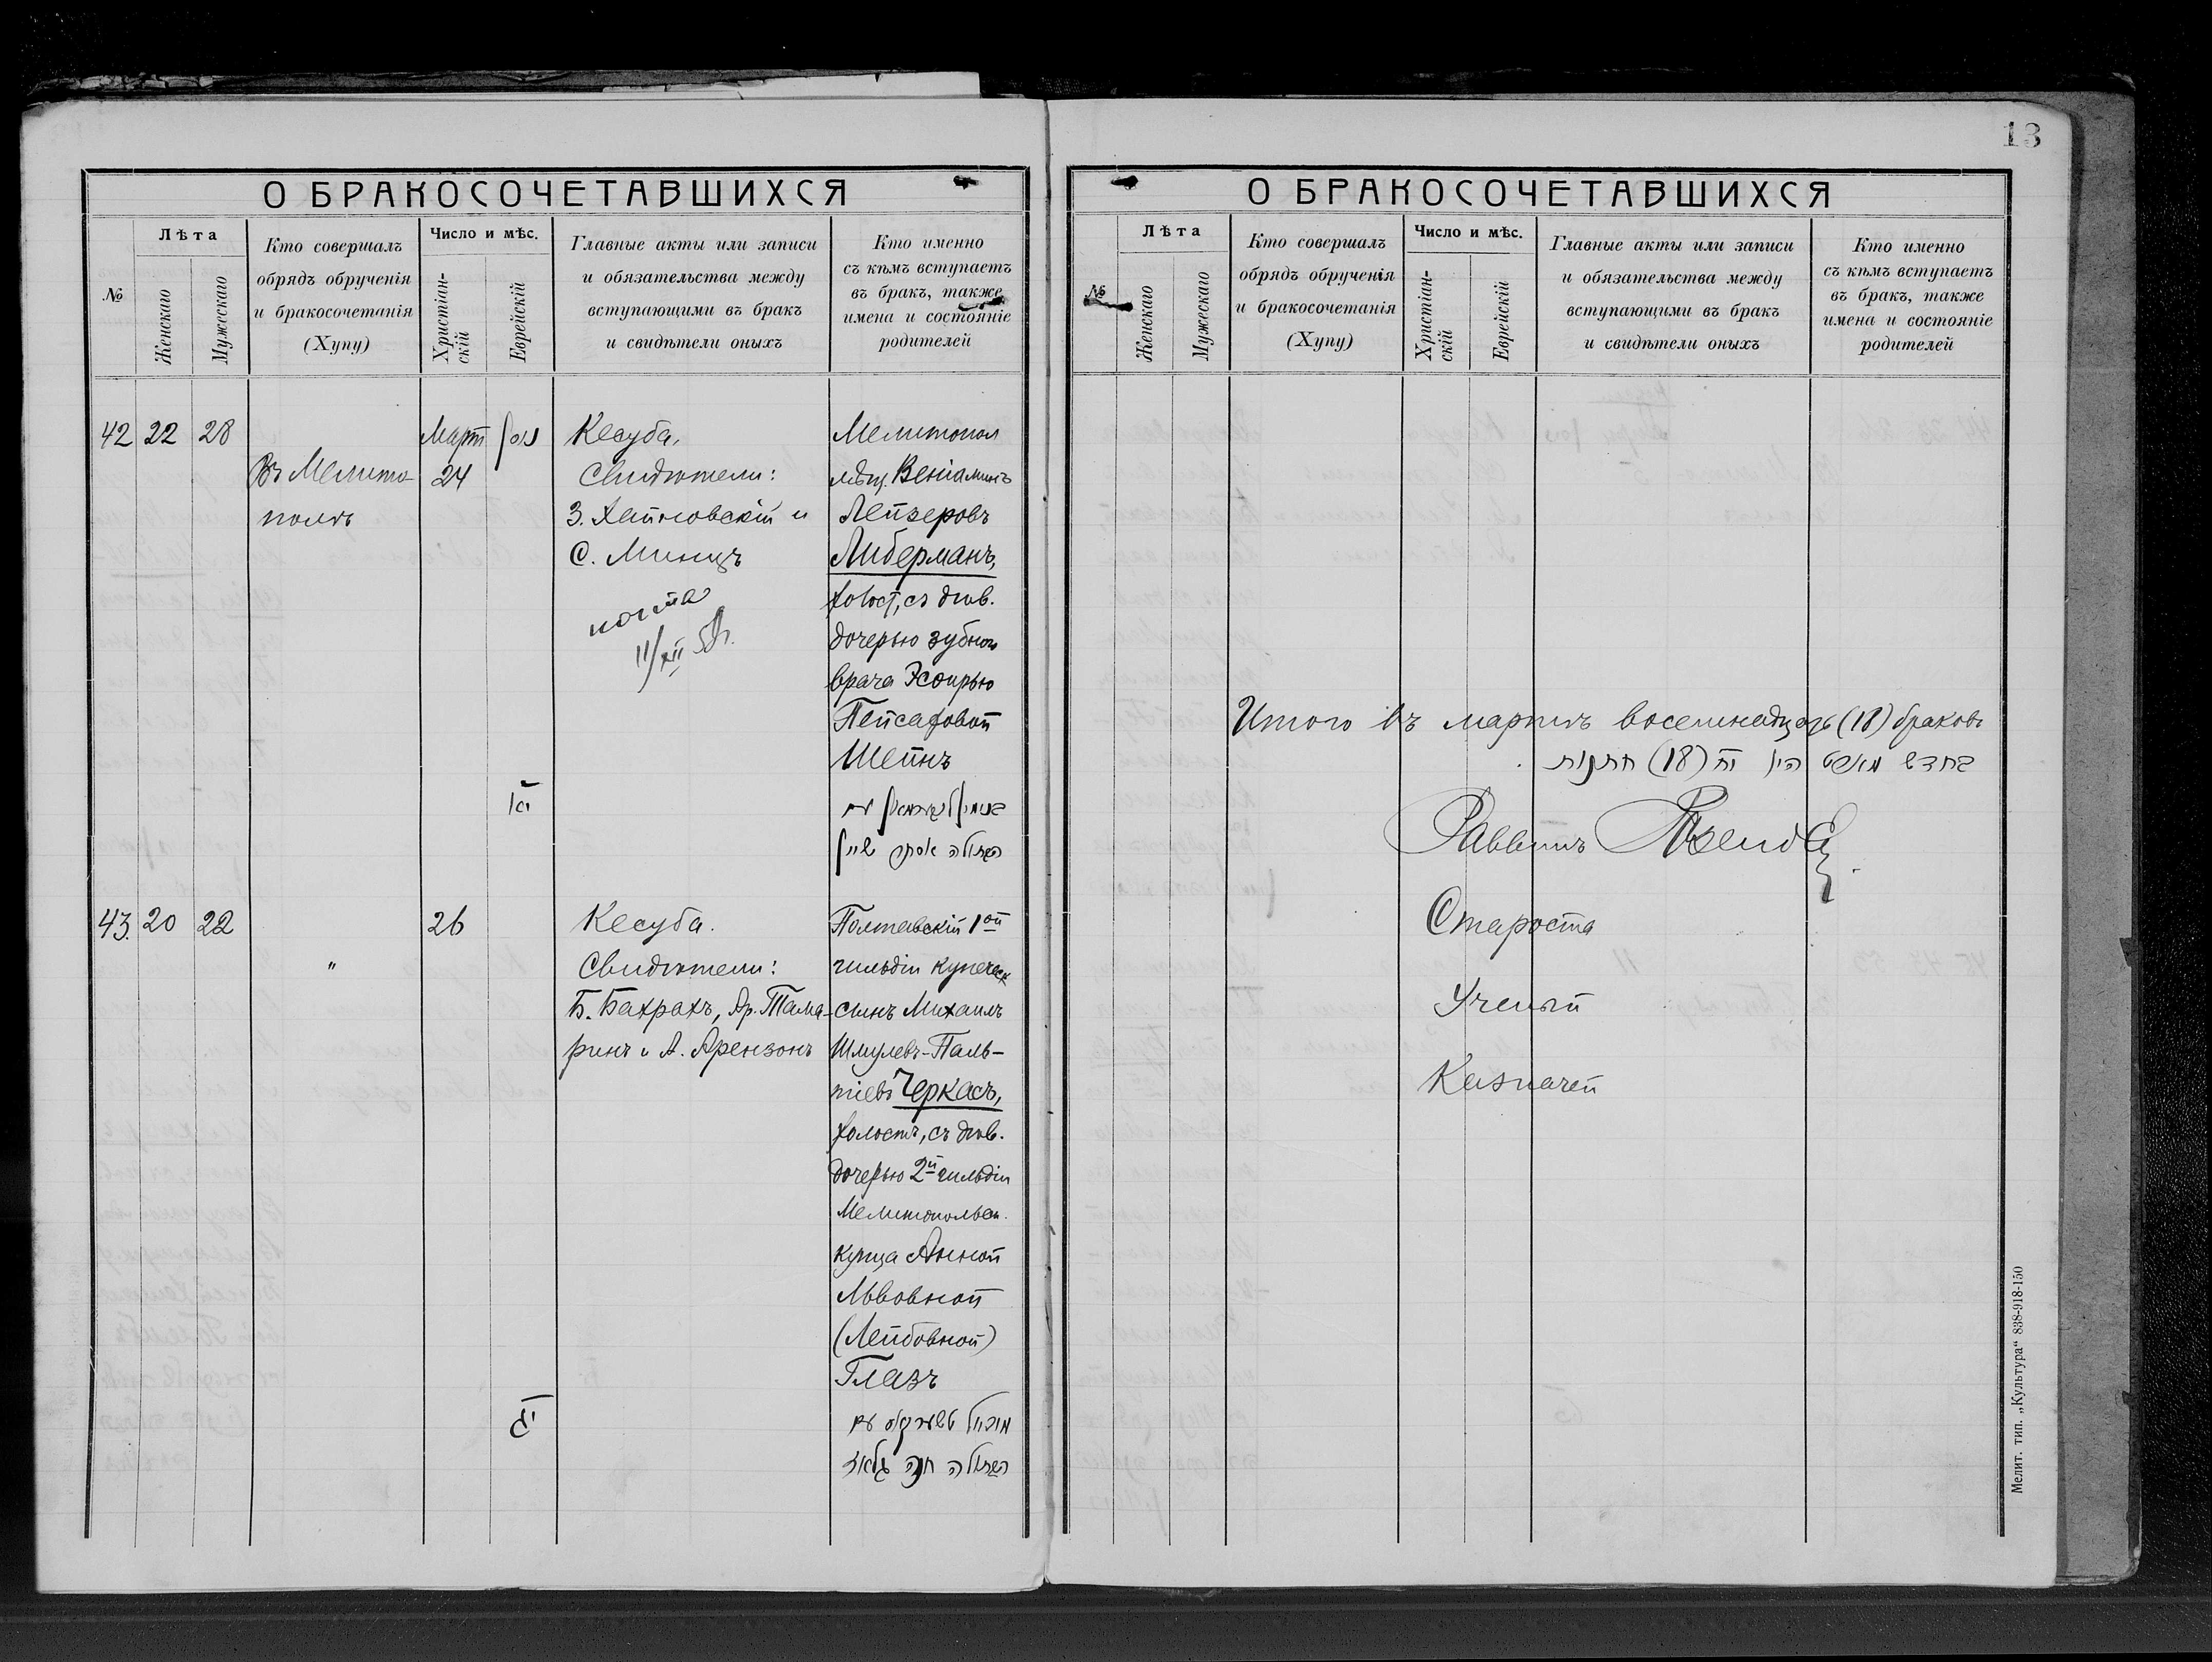 13
О БРАКОСОЧЕТАВШИХСЯ
№
Лѣта
Женскаго
Мужескаго
Кто совершалъ
обрядъ обрученія
и бракосочетанія
(Хупу)
Число и мѣс.
Христіан-
скій
Еврейскій
Главные акты или записи
и обязательства между
вступающими въ бракъ
и свидѣтели оныхъ
Кто именно
съ кѣмъ вступаетъ
въ бракъ, также
имена и состояніе
родителей
42 22 28
Въ Мелито-
полѣ
Март ניסן
24
יא
Кесуба.
Свидѣтели:
З. и
С. Минцъ
копія
11/XII
Мелитопол
мѣщ. Веніаминъ
Лейзеровъ
Либерманъ,
холост, съ дѣв.
дочерью зубного
врача Эсѳирью
Пейсаховой
Шейнъ
בנימין ליבערמאן עם
הבתולה אסתר שיין
43. 20 22
"
26
יג
Кесуба.
Свидѣтели:
Б. Бахрахъ, Ар. Тама-
ринъ и А. Арензонъ
Полтавскій 1ой
гильдіи купеческ
сынъ Михаилъ
Шмулевъ-Паль-
тіевъ Черкасъ,
холостъ, съ дѣв.
дочерью 2й гильдіи
Мелитопольск.
купца Анной
Львовной
(Лейбовной)
Глазъ
מיכאל טשערקאס עם
הבתולה חנה גלאז
О БРАКОСОЧЕТАВШИХСЯ
№
Лѣта
Женскаго
Мужескаго
Кто совершалъ
обрядъ обрученія
и бракосочетанія
(Хупу)
Число и мѣс.
Христіан-
скій
Еврейскій
Главные акты или записи
и обязательства между
вступающими въ бракъ
и свидѣтели оныхъ
Кто именно
съ кѣмъ вступаетъ
въ бракъ, также
имена и состояніе
родителей
Итого въ мартѣ восемнадцать (18) браковъ
בחדש מארט היו יח (18) חתונות
Раввинъ
Староста
Ученый
Казначей
Мелит. тип. „Культура“ 838-918-150